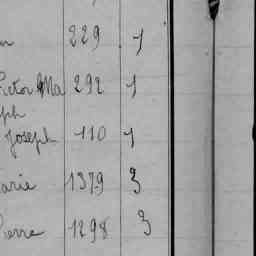 229 1
Victor Ma 292 1
ph
Joseph 110 1
arie 1379 3
Pierre 1298 3